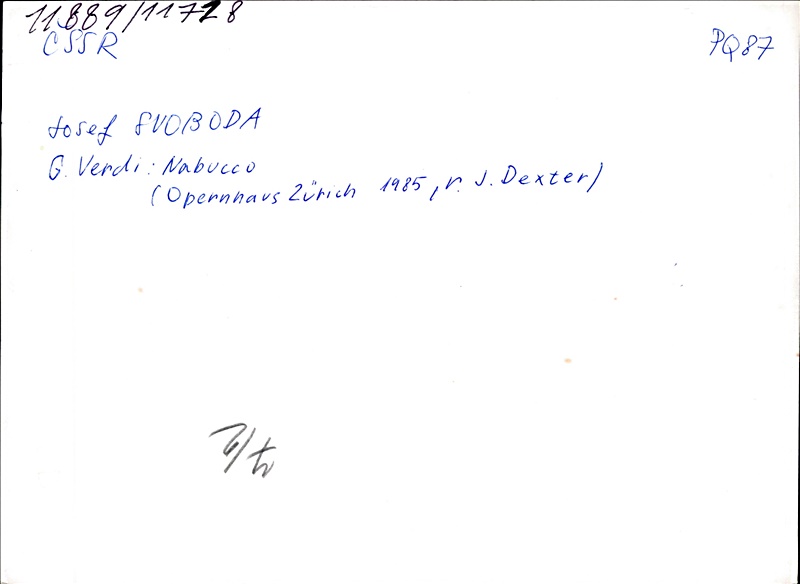 11889/11728
ČSSR
PQ87
Josef SVOBODA
G. Verdi: Nabucco
(Opernhaus Zürich 1985, r. J. Dexter)